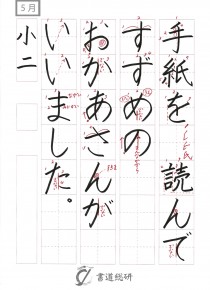 5月
手紙を読んで
すずめの
おかあさんが
いいました。
小二
書道総研